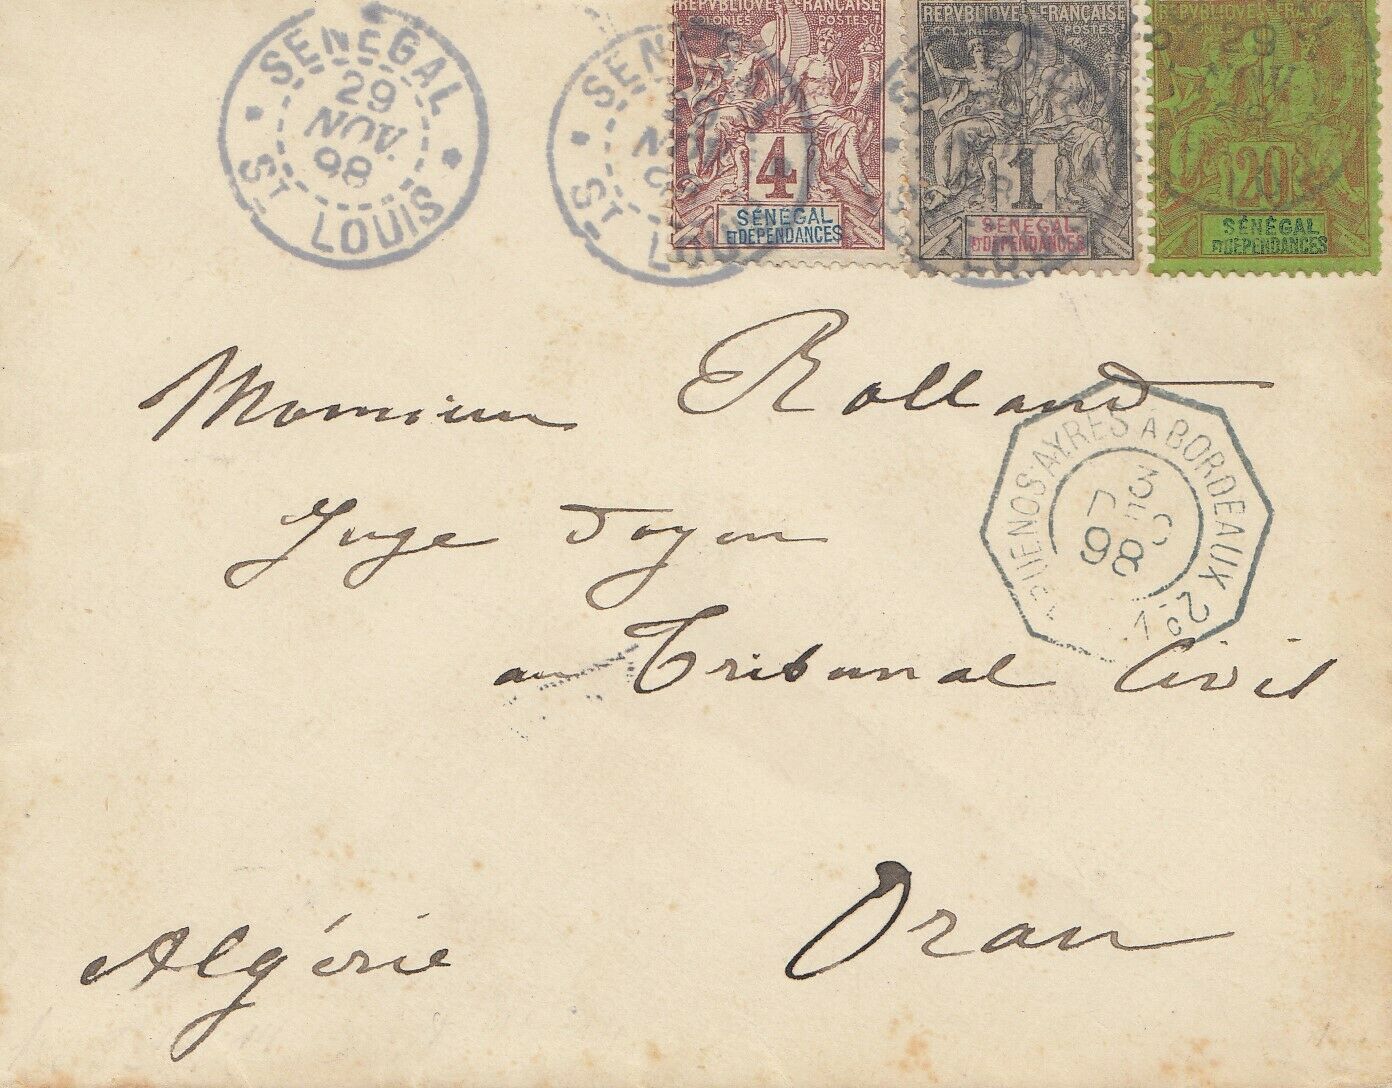 SENEGAL
29
NOV.
98
ST LOUIS
SENE
ST LOU
REPVBLIQVE FRANÇAISE
COLONIES POSTES
4
SÉNÉGAL
ET DÉPENDANCES
REPVBLIQVE FRANÇAISE
COLONIES POSTES
1
SÉNÉGAL
ET DÉPENDANCES
REPVBLIQVE FRANÇAISE
29
20
SÉNÉGAL
ET DÉPENDANCES
Monsieur Rolland
BUENOS-AYRES A BORDEAUX
3
DEC
98
Juge Doyen
au Tribunal Civil
Oran
Algérie